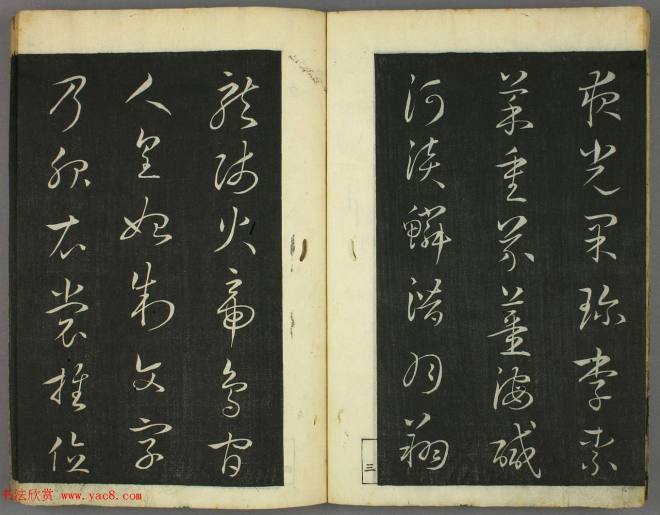 夜光果珍李柰
菜重芥薑海鹹
河淡鱗潛羽翔
三
龍師火帝鳥官
人皇始制文字
乃服衣裳推位
书法欣赏 www.yac8.com